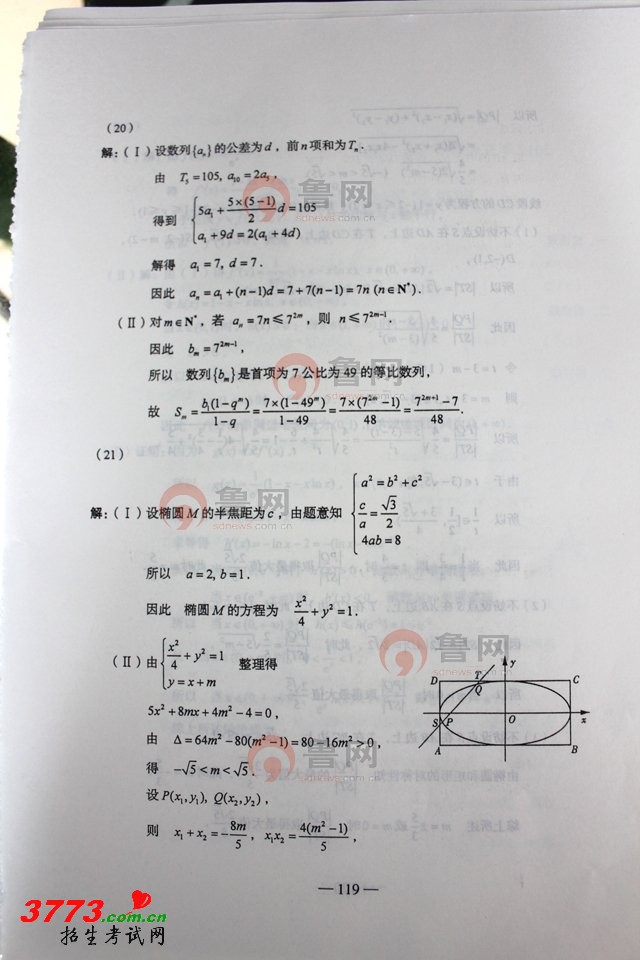 (20)
解:(Ⅰ)设数列{aₙ}的公差为d,前n项和为Tₙ.
由 T₅=105, a₁₀=2a₅,
得到 {5a₁+5×(5-1)/2 d=105
a₁+9d=2(a₁+4d)
解得 a₁=7, d=7.
因此 aₙ=a₁+(n-1)d=7+7(n-1)=7n (n∈N*).
(Ⅱ)对m∈N*,若 aₙ=7n≤7²ᵐ,则 n≤7²ᵐ⁻¹.
因此 bₘ=7²ᵐ⁻¹,
所以 数列{bₘ}是首项为7公比为49的等比数列,
故 Sₘ=b₁(1-qᵐ)/(1-q)=7×(1-49ᵐ)/(1-49)=7×(7²ᵐ-1)/48=(7²ᵐ⁺¹-7)/48.
(21)
解:(Ⅰ)设椭圆M的半焦距为c,由题意知 {a²=b²+c²
c/a=√3/2
4ab=8
所以 a=2, b=1.
因此 椭圆M的方程为 x²/4+y²=1.
(Ⅱ)由{x²/4+y²=1 整理得
y=x+m
5x²+8mx+4m²-4=0,
由 Δ=64m²-80(m²-1)=80-16m²>0,
得 -√5<m<√5.
设P(x₁,y₁), Q(x₂,y₂),
则 x₁+x₂=-8m/5, x₁x₂=4(m²-1)/5,
y
D T C
Q
S P O x
A B
—119—
鲁网
sdnews.com.cn
鲁网
sdnews.com.cn
鲁网
sdnews.com.cn
鲁网
sdnews.com.cn
3773.com.cn
招生考试网